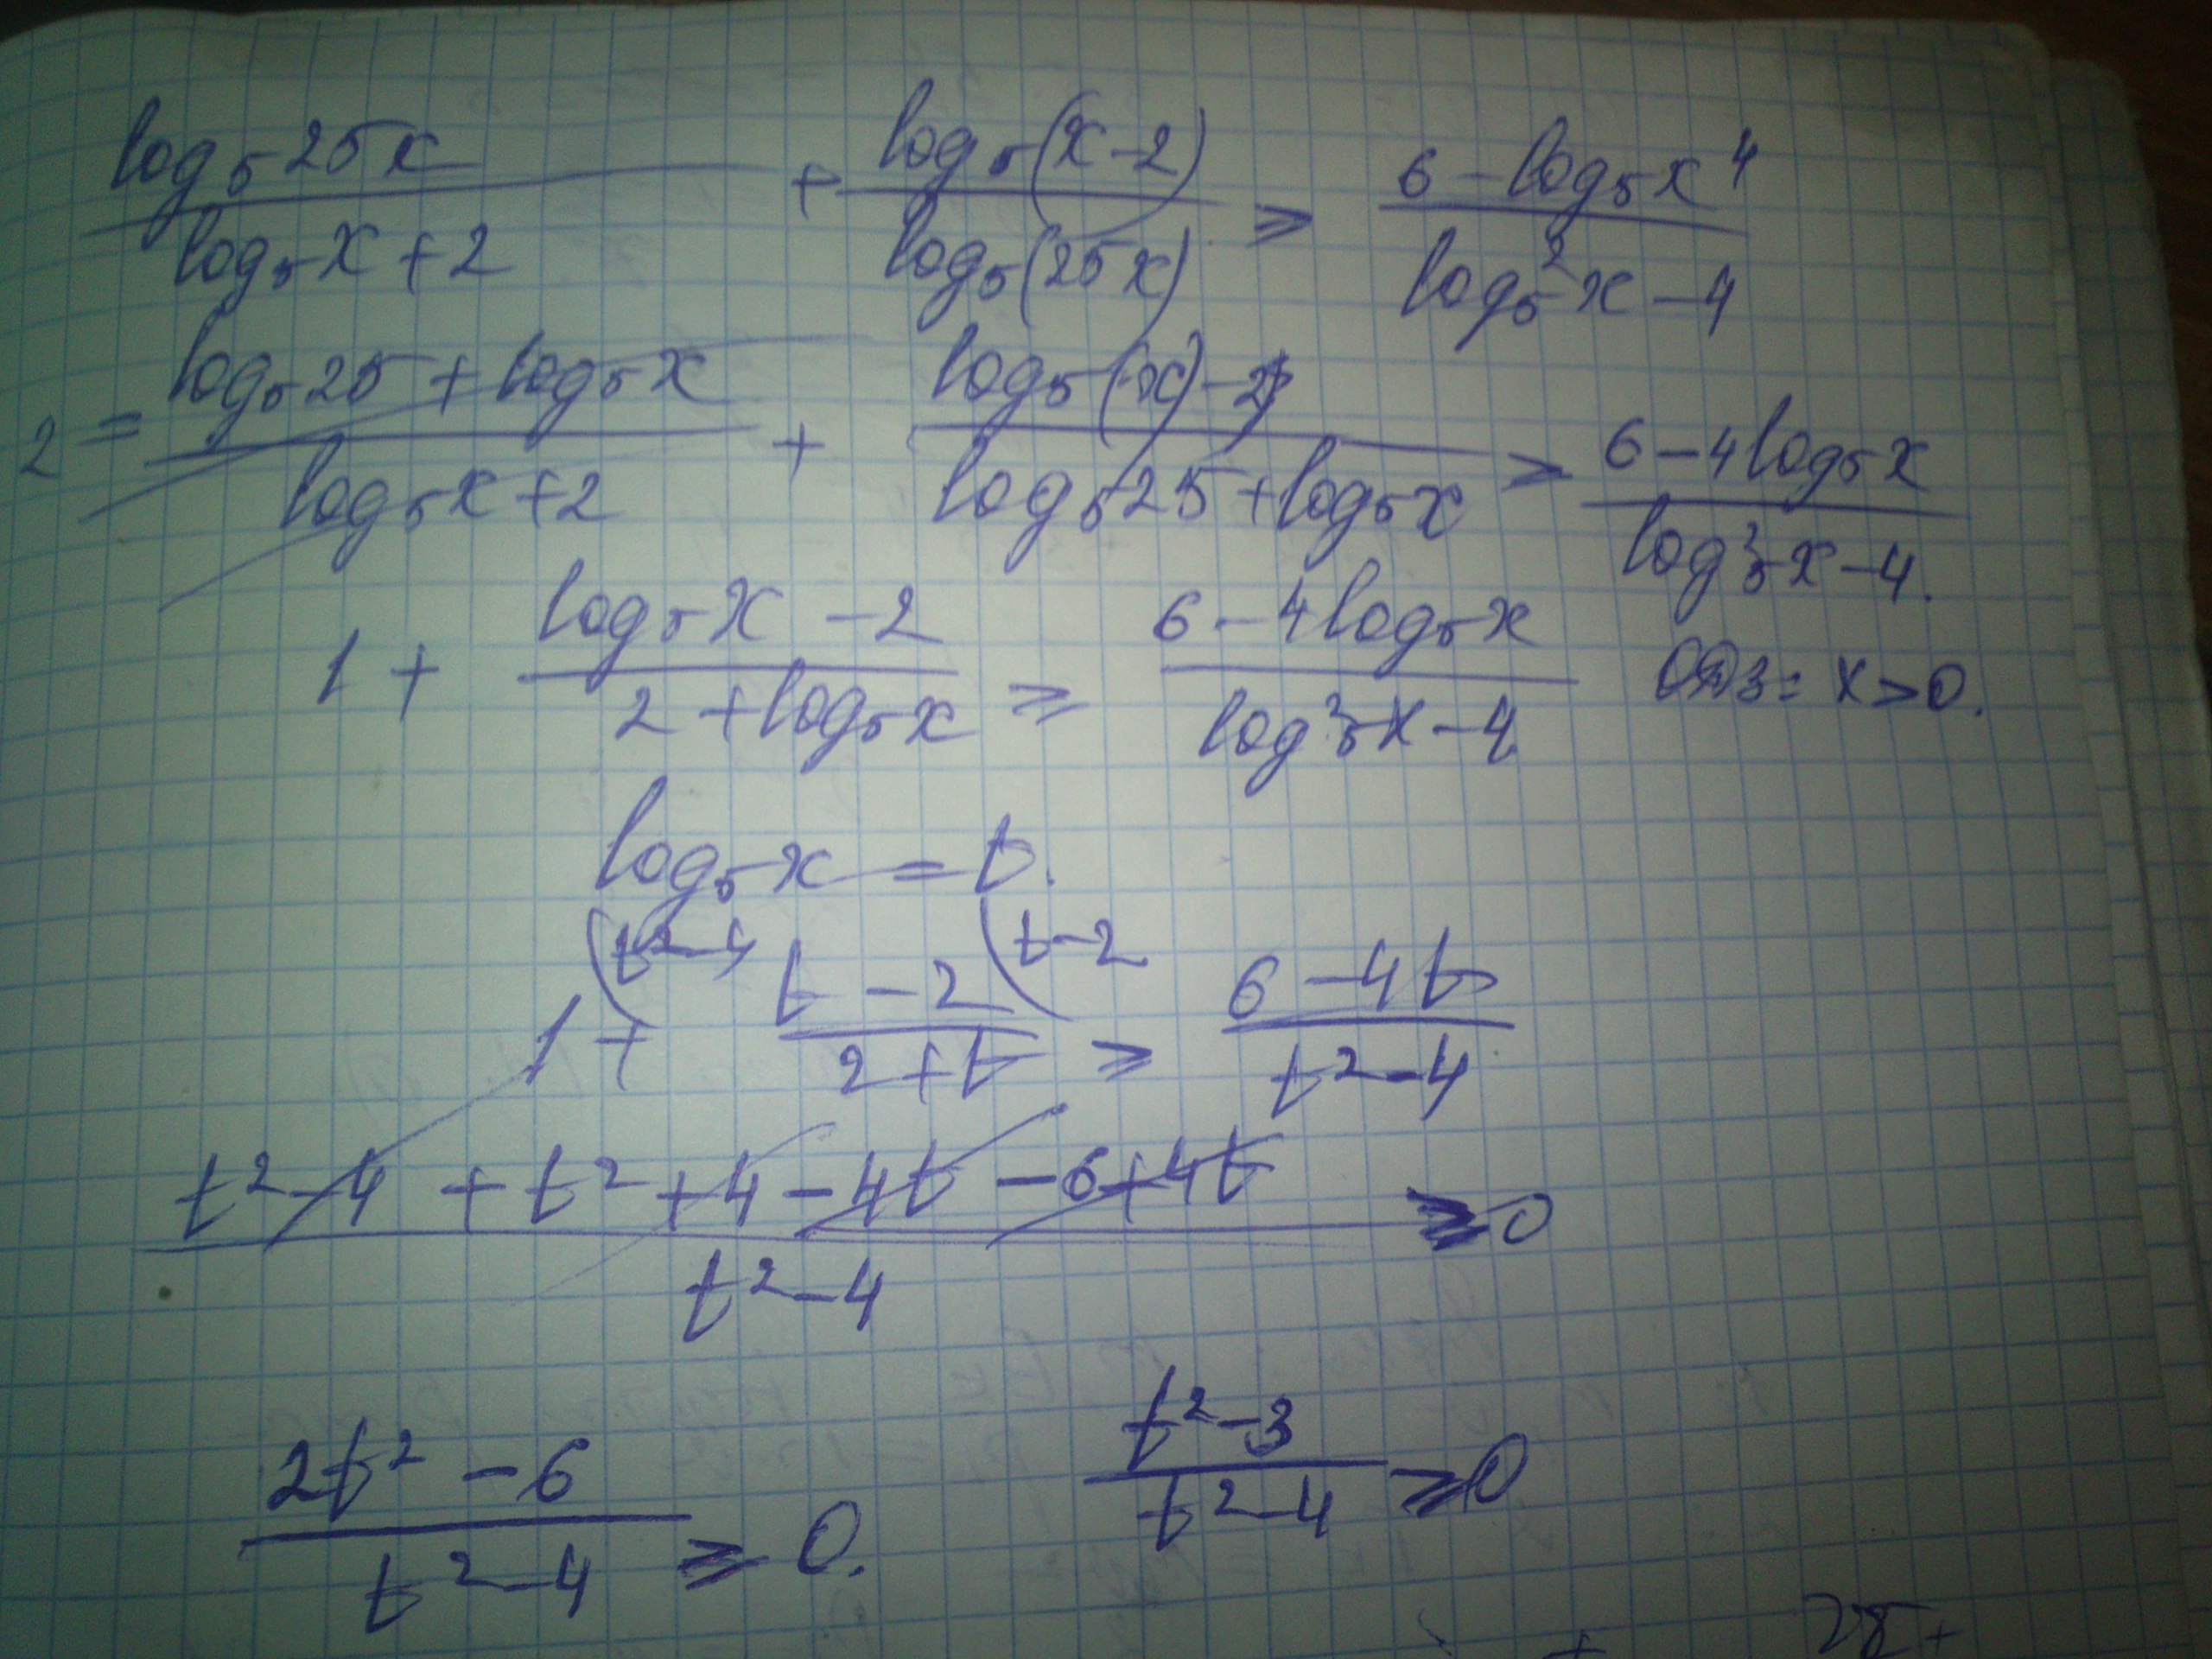 log₅25x / log₅x + 2 + log₅(x-2) / log₅(25x) ≥ 6 - log₅x⁴ / log₅²x - 4
2 = log₅25 + log₅x / log₅x + 2 + log₅(x) - 2 / log₅25 + log₅x ≥ 6 - 4log₅x / log₅²x - 4.
1 + log₅x - 2 / 2 + log₅x ≥ 6 - 4log₅x / log₅²x - 4 ОДЗ: x>0.
log₅x = t.
(t²-4 (t-2
1 + t - 2 / 2 + t ≥ 6 - 4t / t² - 4
t² - 4 + t² + 4 - 4t - 6 + 4t / t² - 4 ≥ 0
2t² - 6 / t² - 4 ≥ 0. t² - 3 / t² - 4 ≥ 0